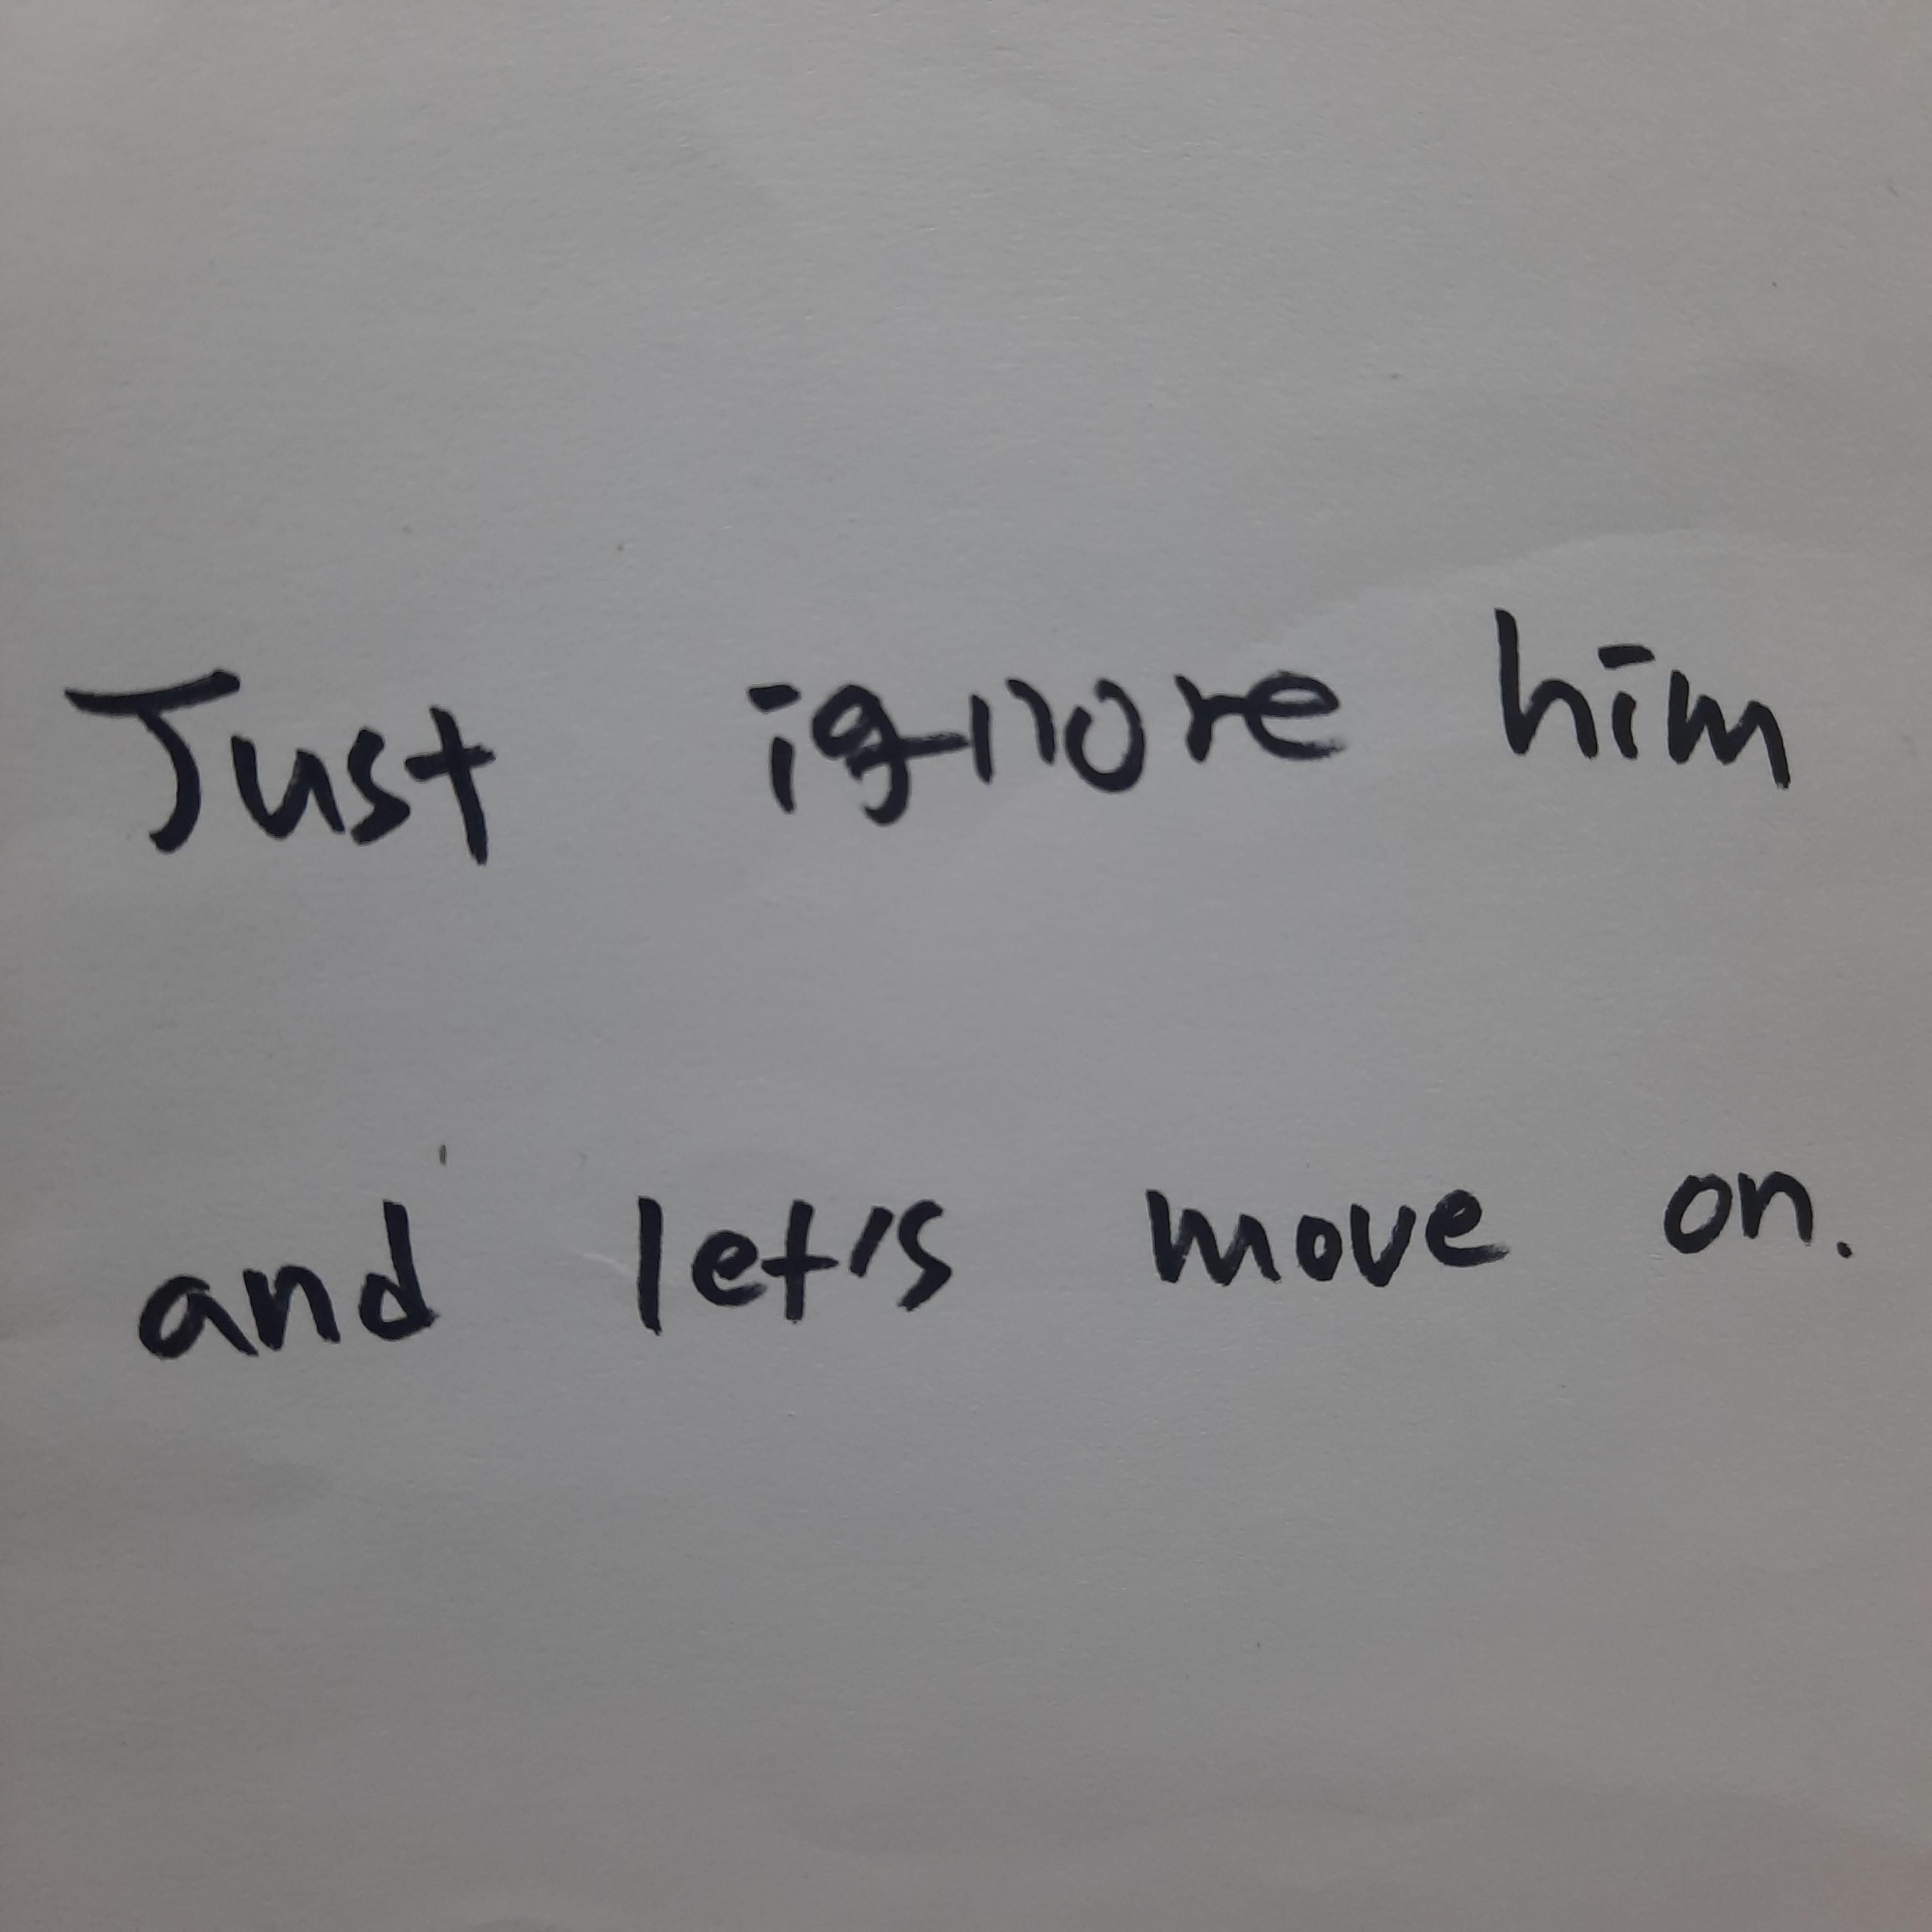 Just ignore him
and let's move on.